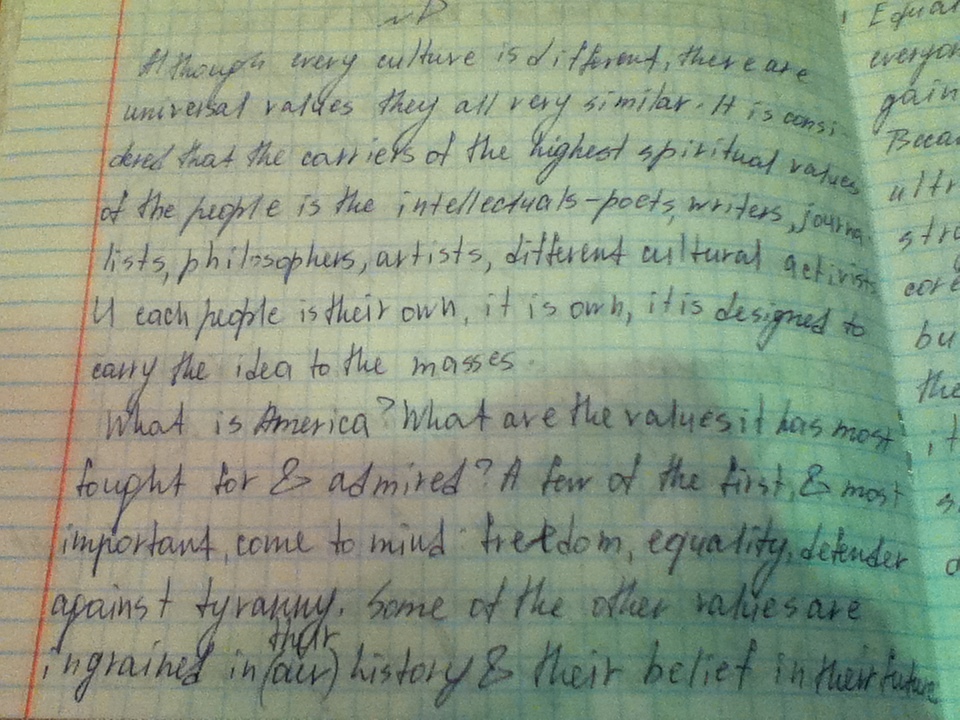 Although every culture is different, there are
universal values they all very similar. It is consi-
dered that the carriers of the highest spiritual values
of the people is the intellectuals-poets, writers, journa
lists, philosophers, artists, different cultural activists
U each people is their own, it is own, it is designed to
carry the idea to the masses.
What is America? What are the values it has most
fought for & admired? A few of the first, & most
important, come to mind: freedom, equality, defender
against tyranny. Some of the other values are
their
ingrained in (our) history & their belief in their future
Equal
everyon
gain
Becau
ultr
stro
core
bu
the
it